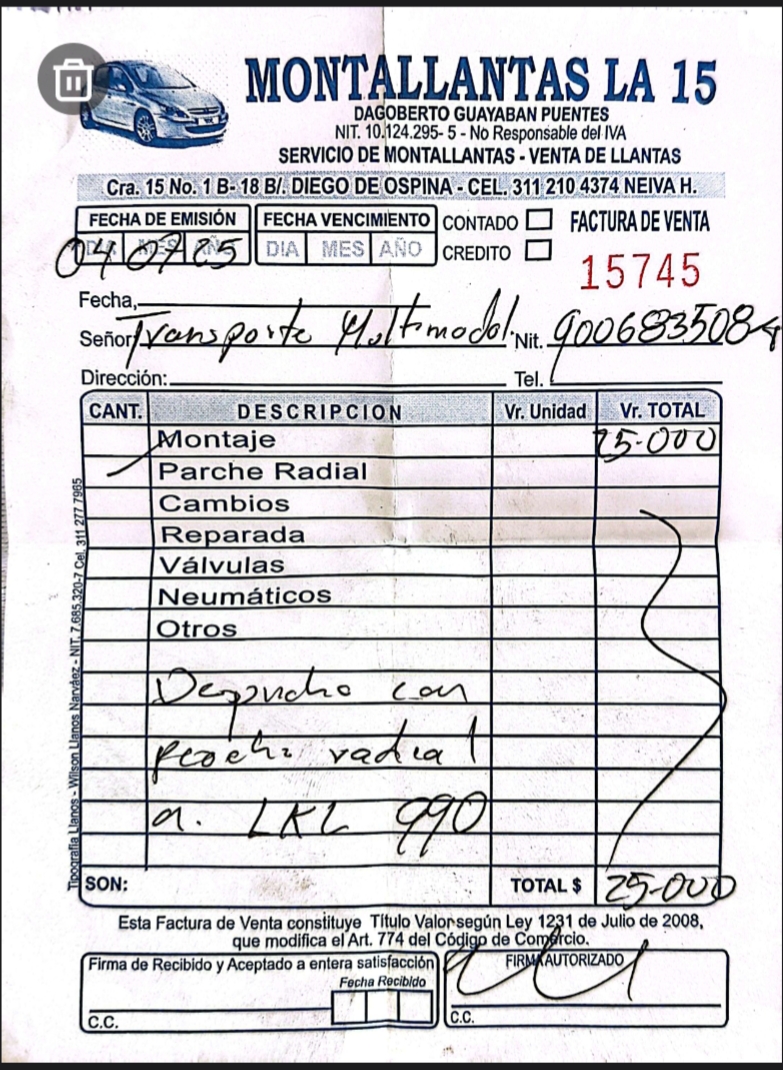 MONTALLANTAS LA 15
DAGOBERTO GUAYABAN PUENTES
NIT. 10.124.295- 5 - No Responsable del IVA
SERVICIO DE MONTALLANTAS - VENTA DE LLANTAS
Cra. 15 No. 1 B- 18 B/. DIEGO DE OSPINA - CEL. 311 210 4374 NEIVA H.
FECHA DE EMISIÓN FECHA VENCIMIENTO CONTADO FACTURA DE VENTA
DIA MES AÑO DIA MES AÑO CREDITO 15745
04 07 25
Fecha,
Señor Transporte Multimodal. Nit. 900683508-9
Dirección: Tel.
CANT. DESCRIPCION Vr. Unidad Vr. TOTAL
Montaje 25-000
Parche Radial
Cambios
Reparada
Válvulas
Neumáticos
Otros
con
radial
a. LKL 990
SON: TOTAL $ 25-000
Esta Factura de Venta constituye Título Valor según Ley 1231 de Julio de 2008,
que modifica el Art. 774 del Código de Comercio.
Firma de Recibido y Aceptado a entera satisfacción FIRMA AUTORIZADO
Fecha Recibido
C.C. C.C.
Tipografía Llanos - Wilson Llanos Narváez - NIT. 7.685.320-7 Cel. 311 277 7965